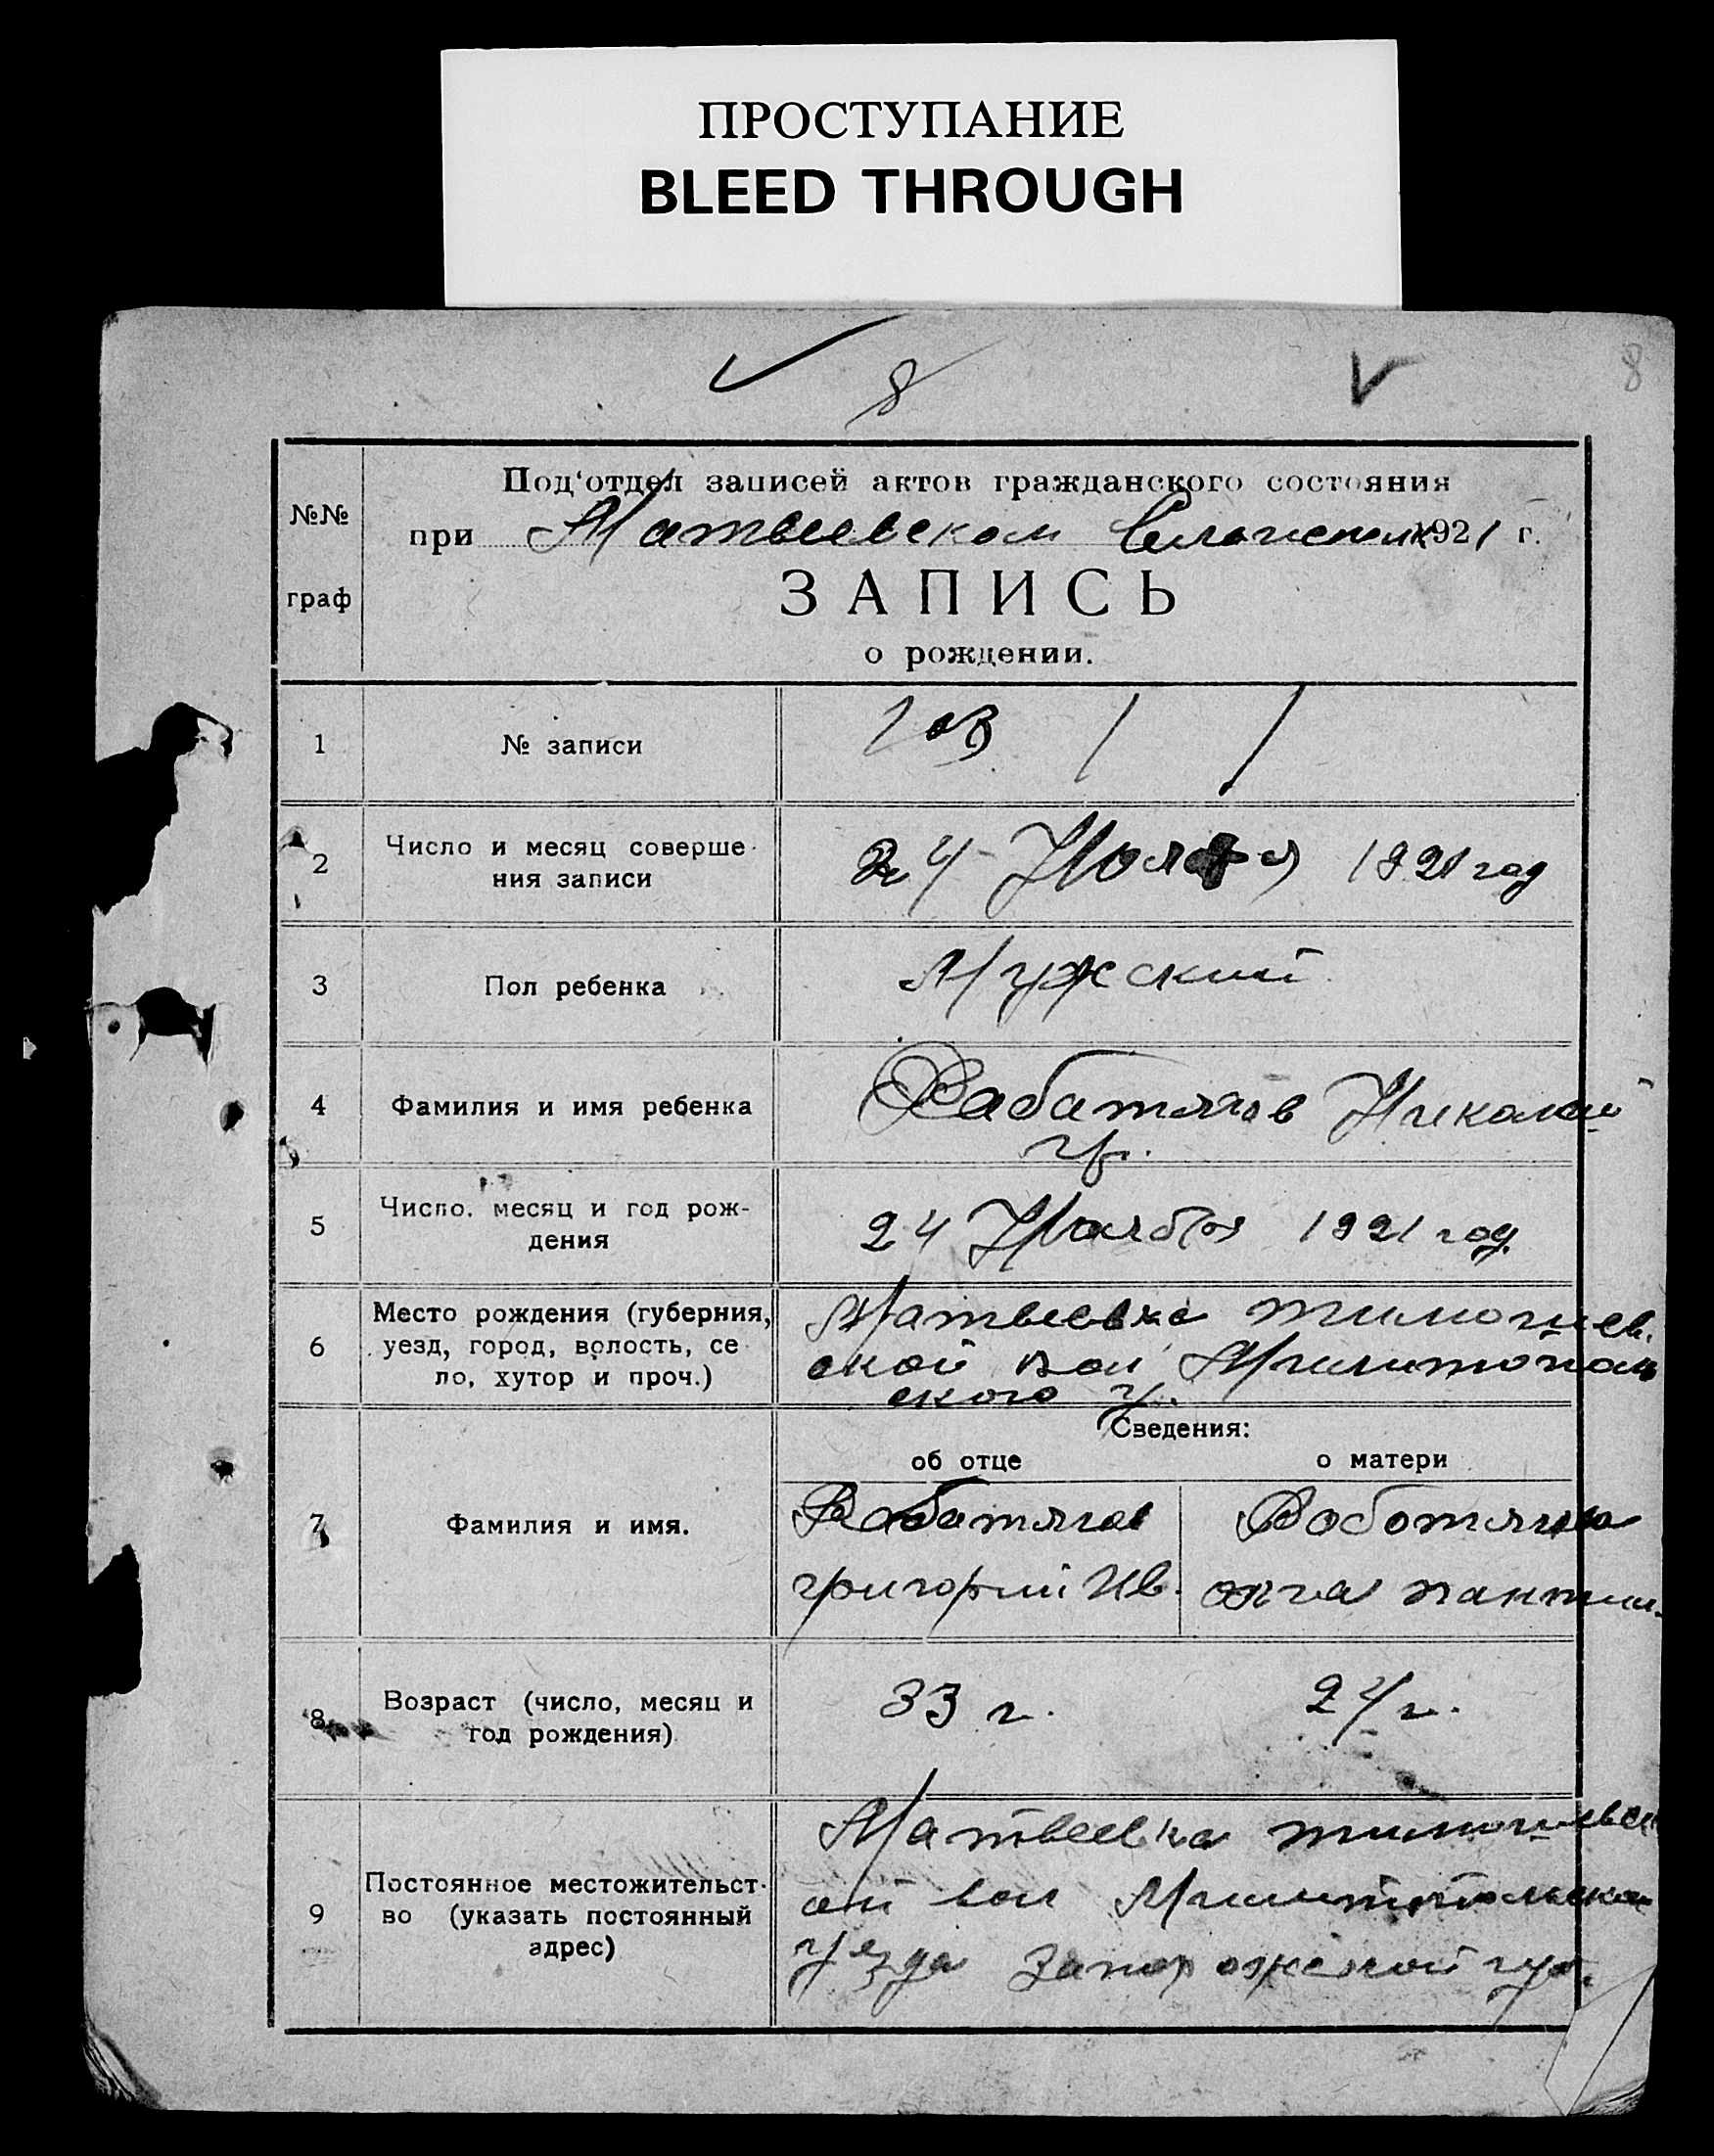 ПРОСТУПАНИЕ
BLEED THROUGH
8
8
№№
граф
Под'отдел записей актов гражданского состояния
при Матвеевском 1921 г.
ЗАПИСЬ
о рождении.
1 № записи 103
2 Число и месяц соверше-
ния записи 24 Ноября 1921 год
3 Пол ребенка Мужский
4 Фамилия и имя ребенка Рабатягов Николай
гр.
5 Число, месяц и год рож-
дения 24 Ноября 1921 год
6 Место рождения (губерния,
уезд, город, волость, се
ло, хутор и проч.)
Матвеевка тимошев.
ской вол Милитополь
ского у.
Сведения:
об отце о матери
7 Фамилия и имя.
Работягов Работягова
григорий Ив.
8 Возраст (число, месяц и
год рождения) 33 г. 24 г.
9 Постоянное местожительст-
во (указать постоянный
адрес)
Матвеевка тимошевск
ой вол Милитопольского
уезда Запорожской губ.